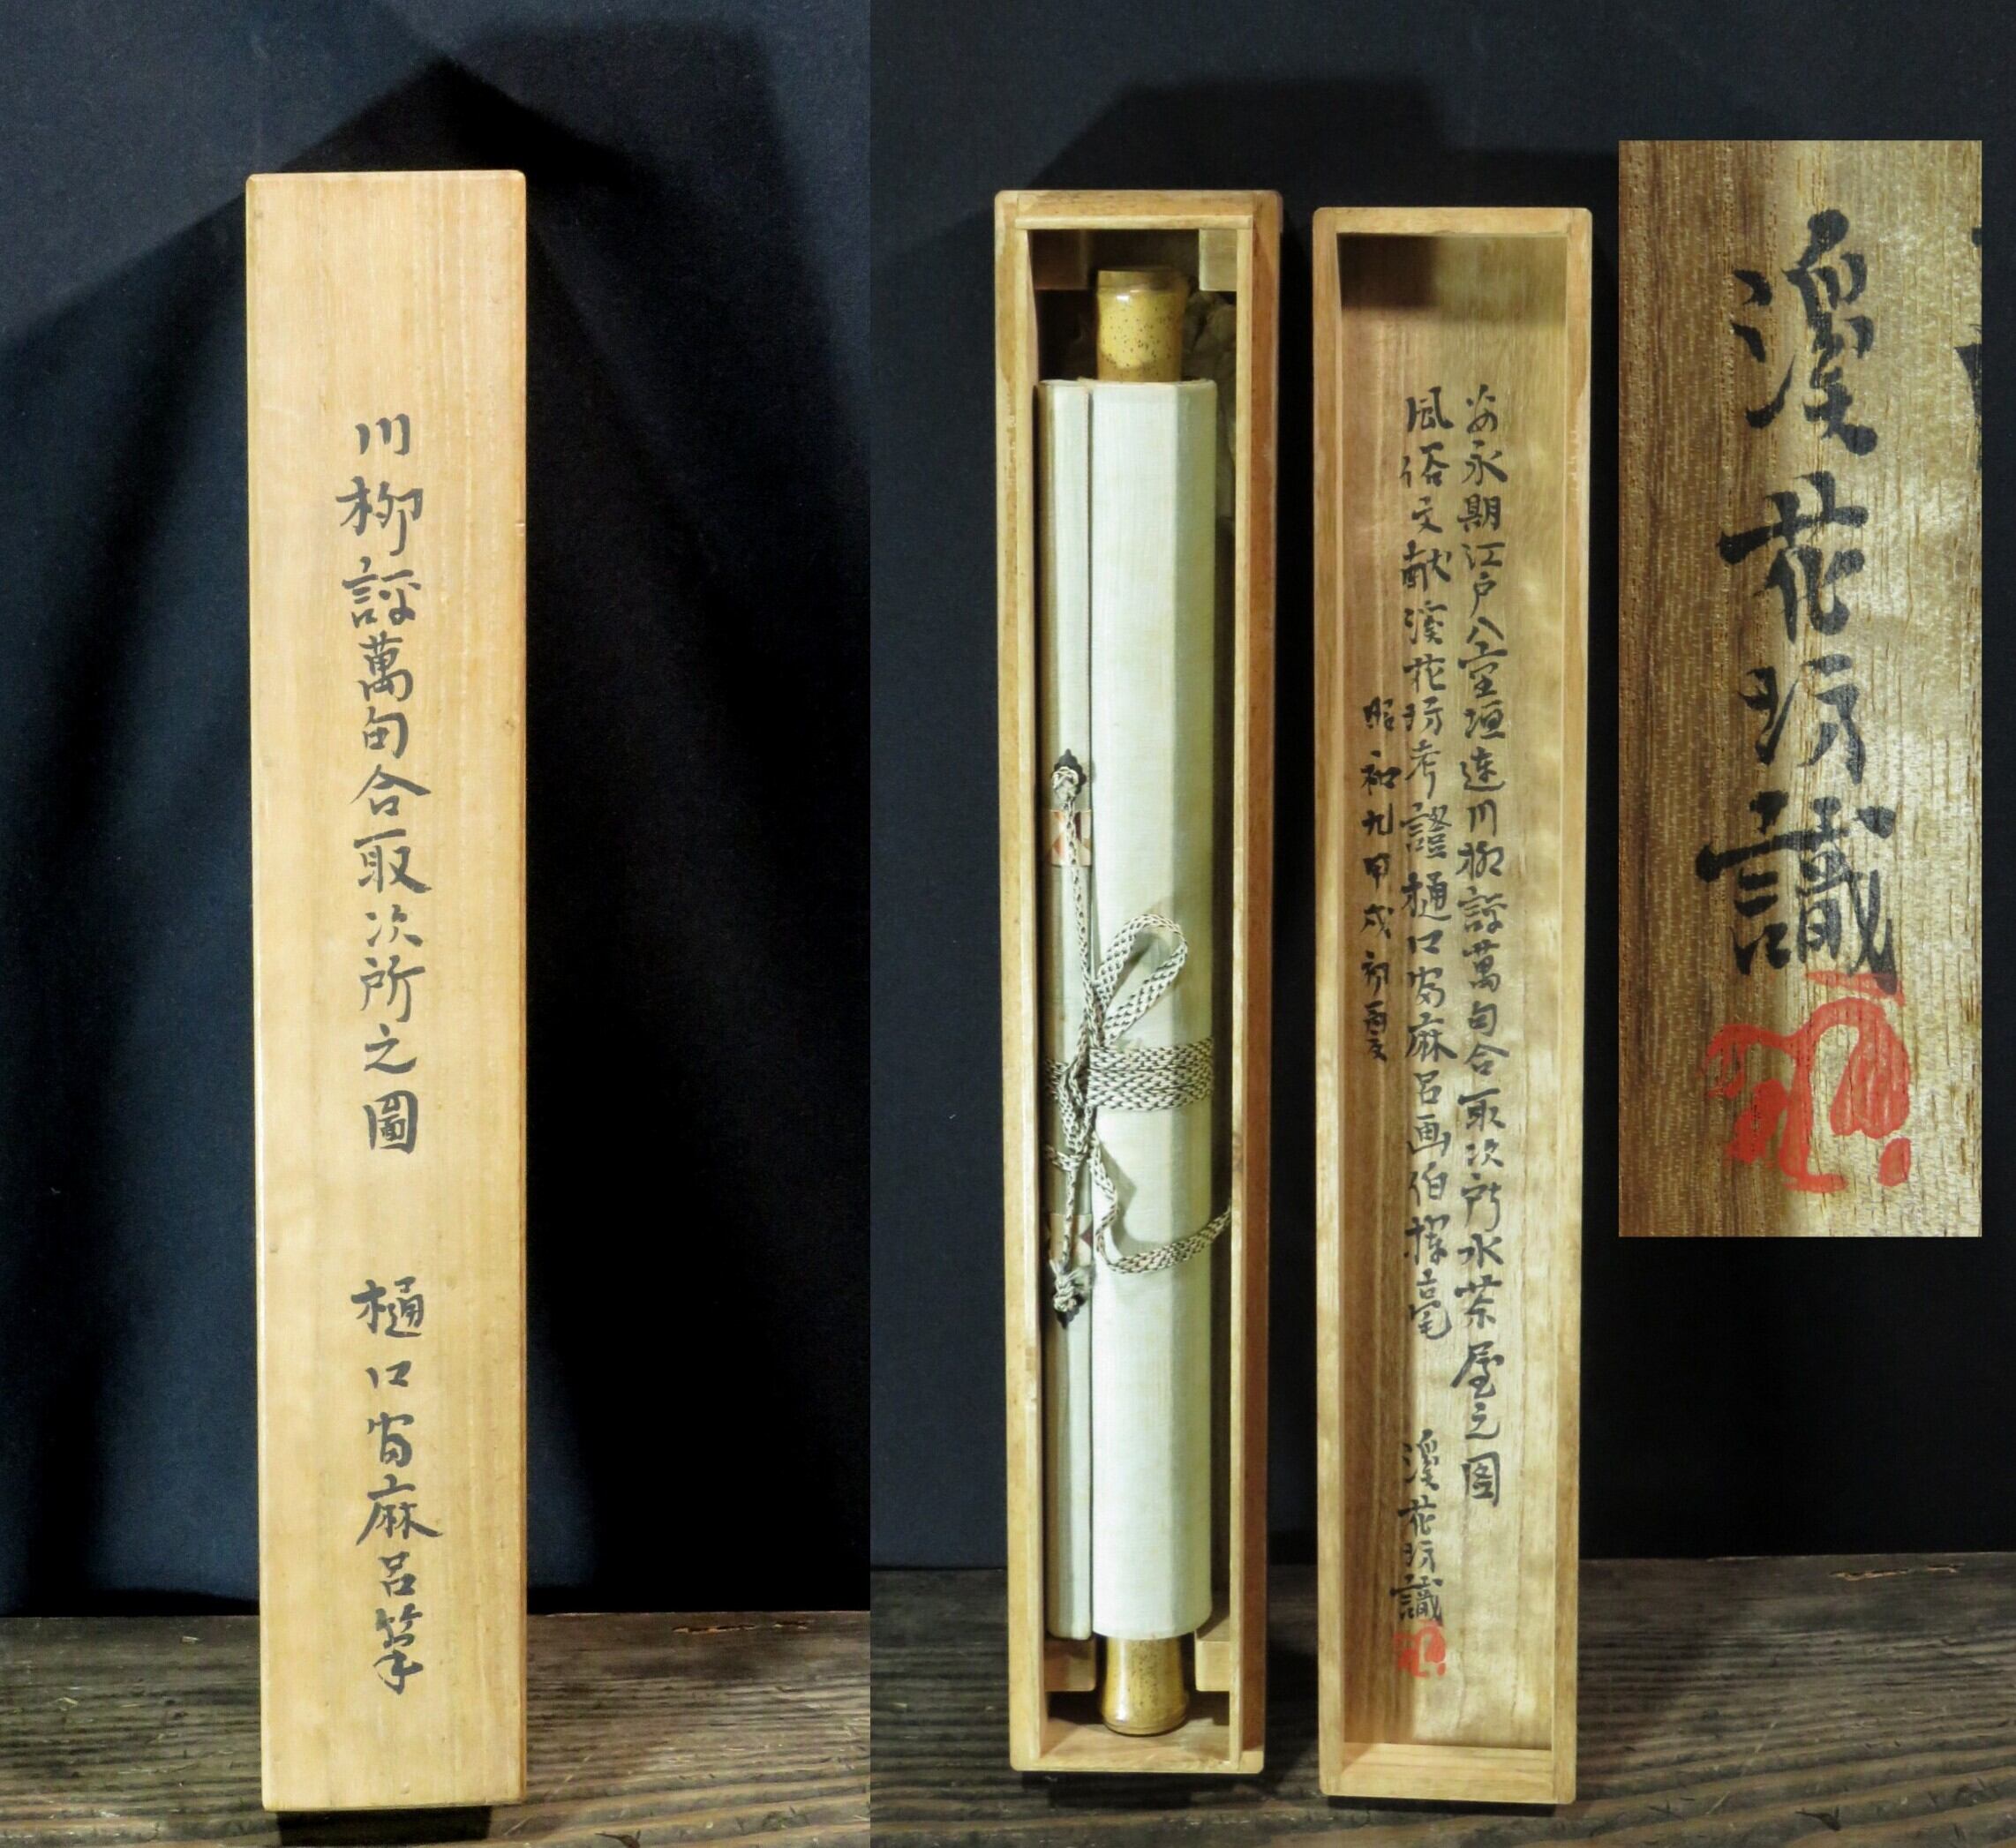 川柳評萬句合取次所之圖
樋口富麻呂筆
安永期江戸八宮垣連川柳評萬句合取次所水茶屋之图
風俗文献溪花坊考證樋口富麻呂画伯揮毫
昭和九甲戌初夏
溪花坊識
溪花坊識